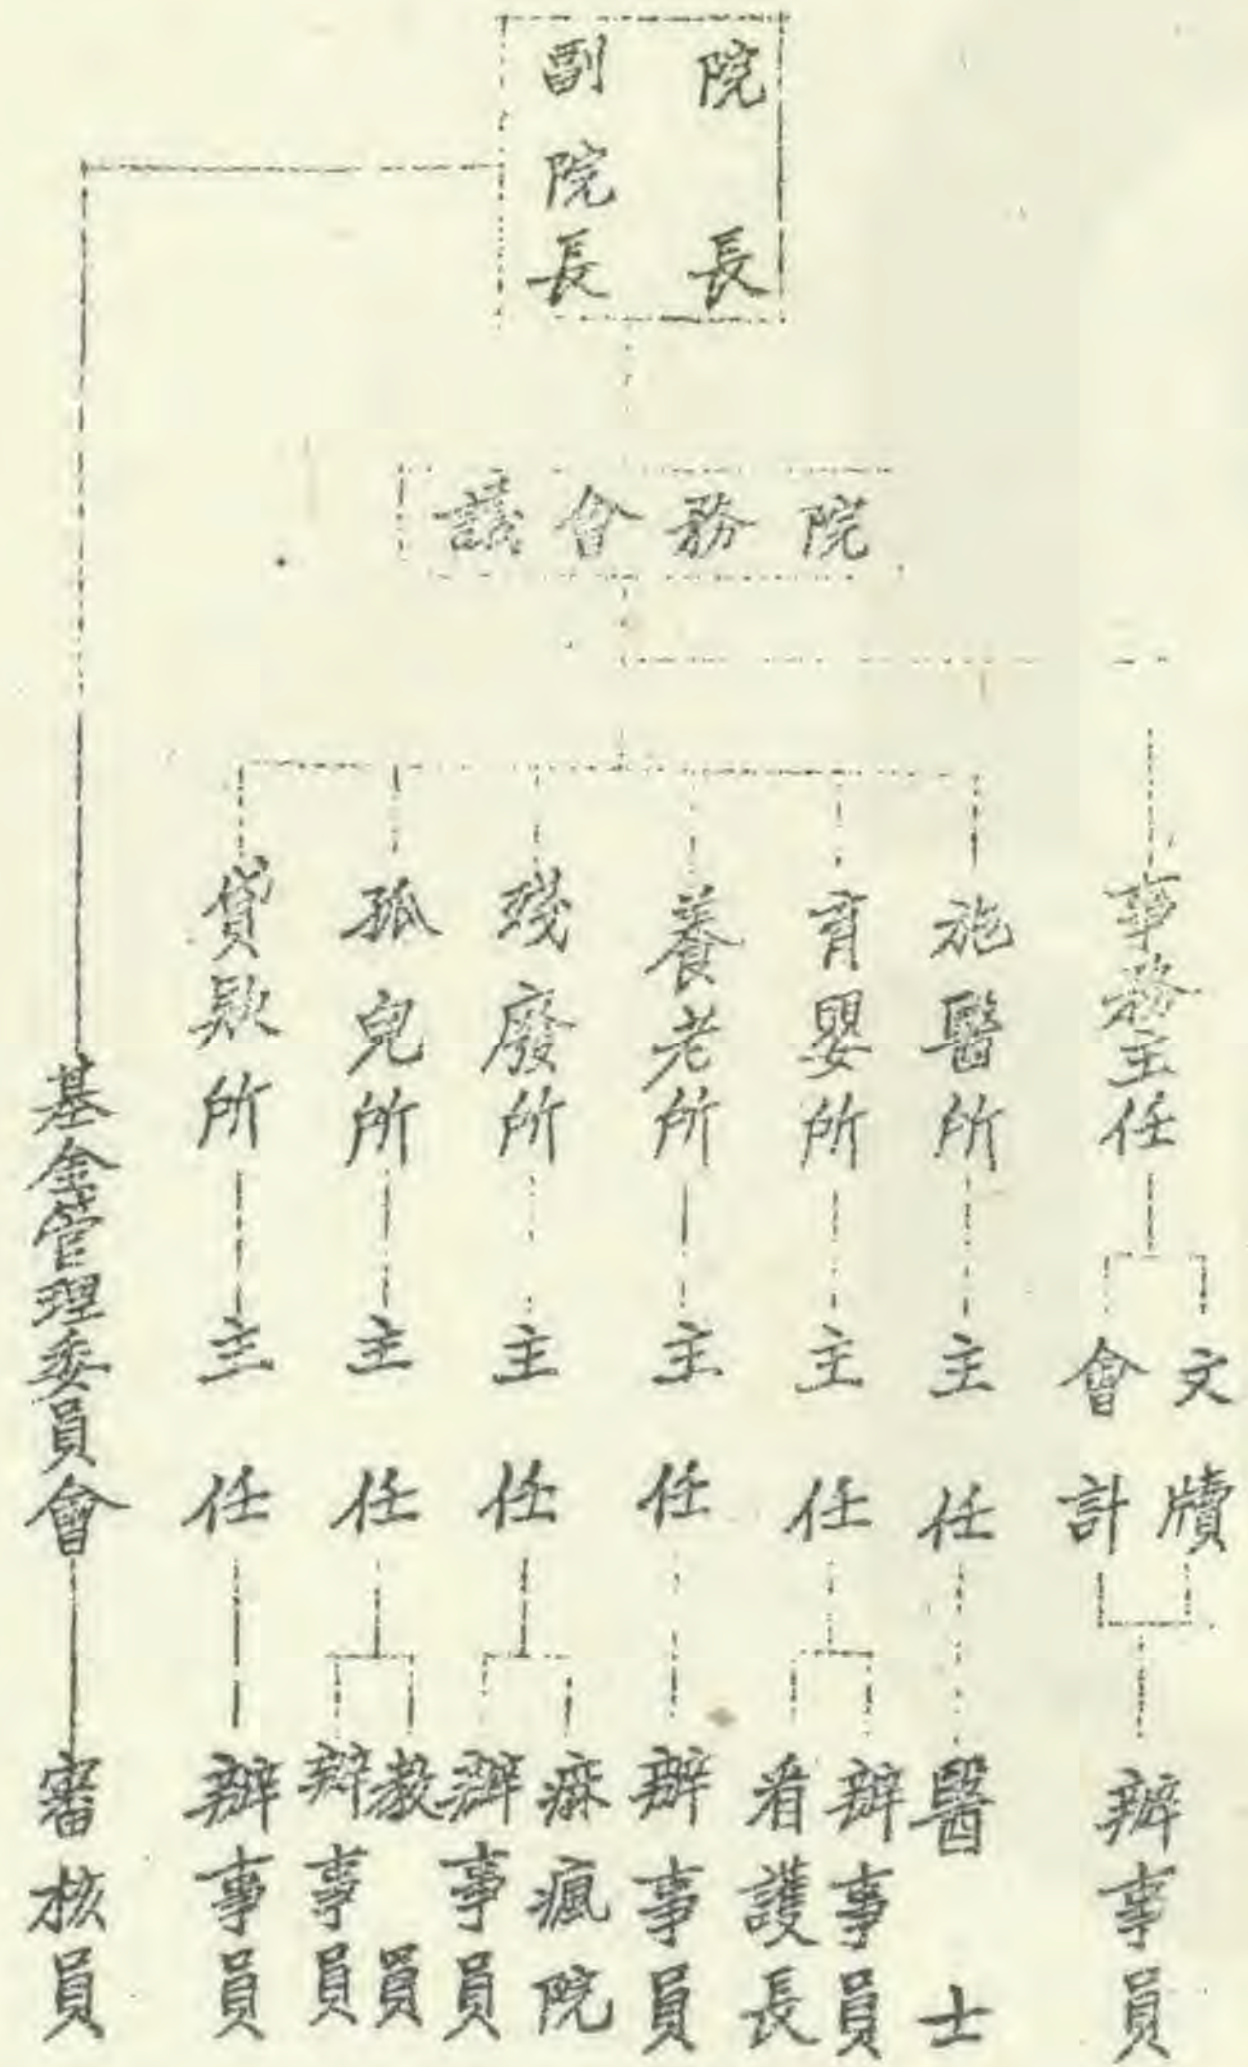 院長
副院長
院務會議
事務主任
文牘
會計
辦事員
施醫所
主任
醫士
育嬰所
主任
辦事員
看護長
養老所
主任
辦事員
殘廢所
主任
痳瘋院
辦事員
孤兒所
主任
教員
辦事員
貸款所
主任
辦事員
基金管理委員會
審核員